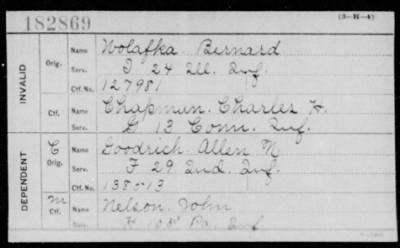 182869
(3-H-4)
INVALID
Orig.
Name Wolafka Bernard
Serv. I 24 Ill. Inf.
Ctf. No. 127981
Ctf.
Name Chapman, Charles H.
Serv. G 13 Conn. Inf.
DEPENDENT
C
Orig.
Name Goodrich Allen N
Serv. F 29 Ind. Inf.
Ctf. No. 138513
M
Ctf.
Name Nelson, John
Serv. Pa. Inf